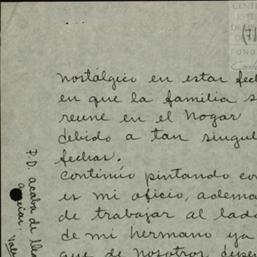 nostálgico en estas fech
en que la familia s
reune en el hogar
debido a tan singul
fechas.
Continúo pintando co
es mi oficio, ademá
de trabajar al lado
de mi hermano ya
que de nosotros depen
P.D. acaba de lle